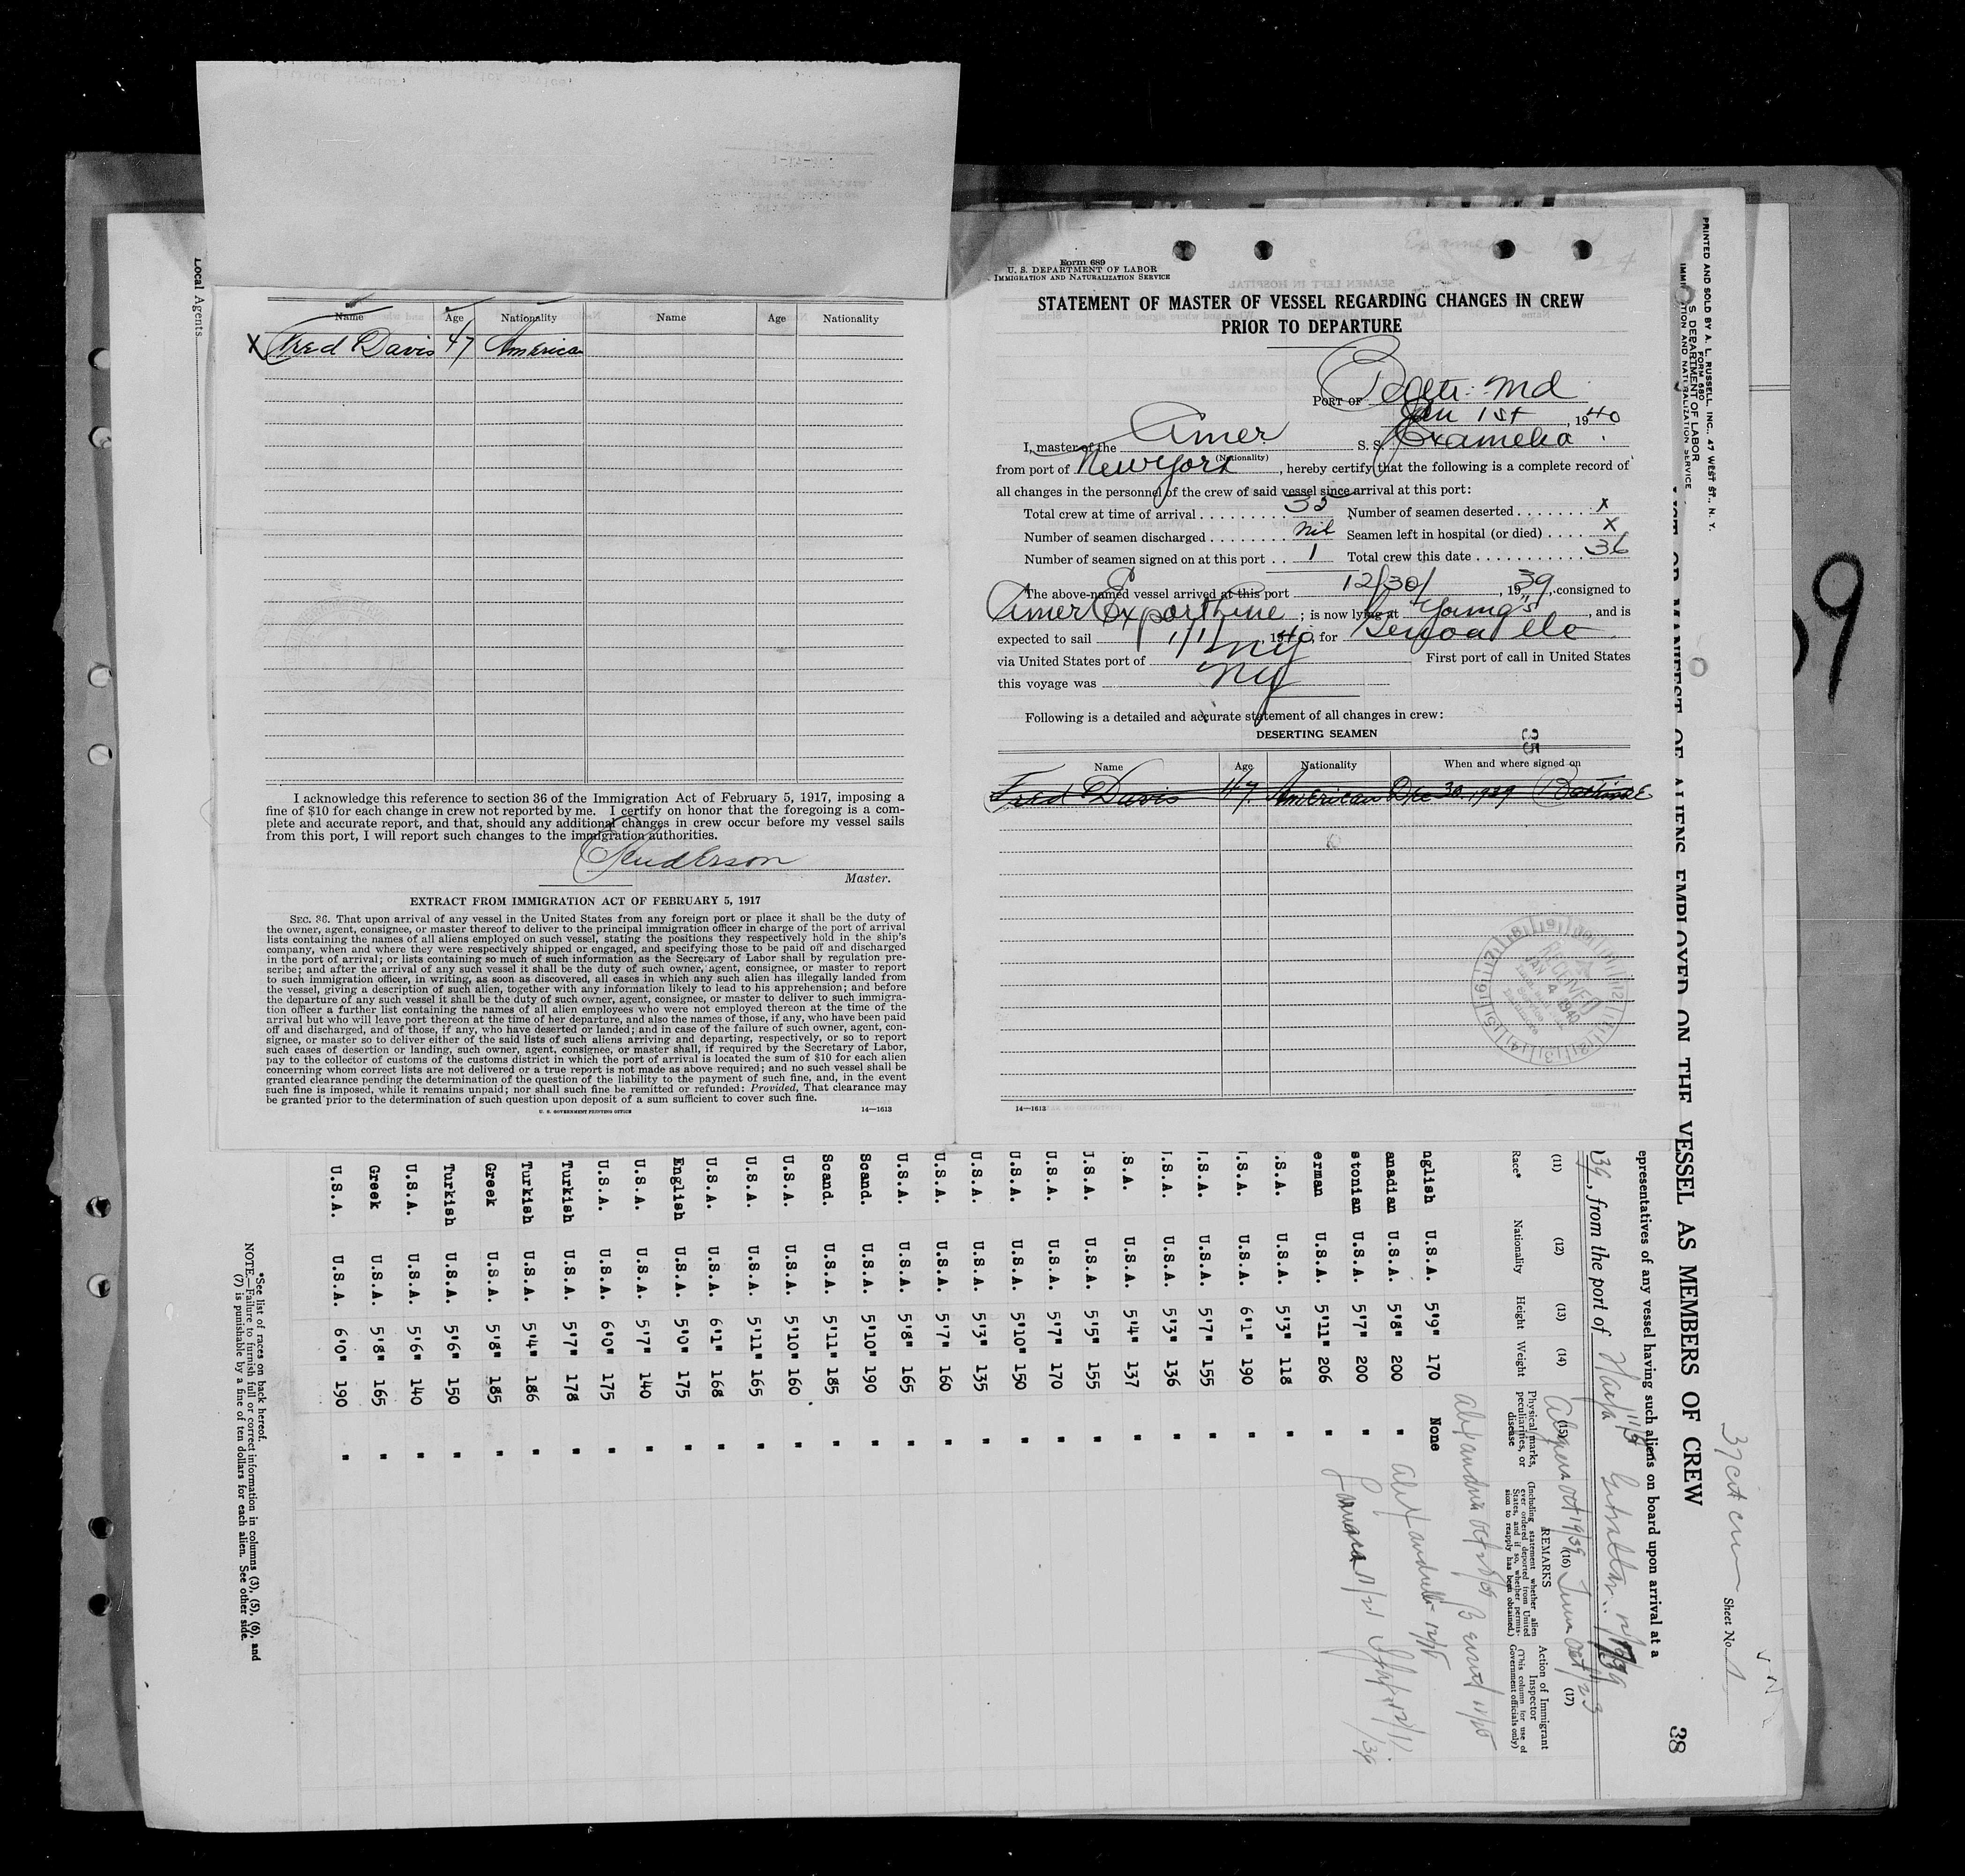 Local Agents
Name Age Nationality Name Age Nationality
X Fred Davis 47 American
I acknowledge this reference to section 36 of the Immigration Act of February 5, 1917, imposing a
fine of $10 for each change in crew not reported by me. I certify on honor that the foregoing is a com-
plete and accurate report, and that, should any additional changes in crew occur before my vessel sails
from this port, I will report such changes to the immigration authorities.
Master.
EXTRACT FROM IMMIGRATION ACT OF FEBRUARY 5, 1917
SEC. 36. That upon arrival of any vessel in the United States from any foreign port or place it shall be the duty of
the owner, agent, consignee, or master thereof to deliver to the principal immigration officer in charge of the port of arrival
lists containing the names of all aliens employed on such vessel, stating the positions they respectively hold in the ship's
company, when and where they were respectively shipped or engaged, and specifying those to be paid off and discharged
in the port of arrival; or lists containing so much of such information as the Secretary of Labor shall by regulation pre-
scribe; and after the arrival of any such vessel it shall be the duty of such owner, agent, consignee, or master to report
to such immigration officer, in writing, as soon as discovered, all cases in which any such alien has illegally landed from
the vessel, giving a description of such alien, together with any information likely to lead to his apprehension; and before
the departure of any such vessel it shall be the duty of such owner, agent, consignee, or master to deliver to such immigra-
tion officer a further list containing the names of all alien employees who were not employed thereon at the time of the
arrival but who will leave port thereon at the time of her departure, and also the names of those, if any, who have been paid
off and discharged, and of those, if any, who have deserted or landed; and in case of the failure of such owner, agent, con-
signee, or master so to deliver either of the said lists of such aliens arriving and departing, respectively, or so to report
such cases of desertion or landing, such owner, agent, consignee, or master shall, if required by the Secretary of Labor,
pay to the collector of customs of the customs district in which the port of arrival is located the sum of $10 for each alien
concerning whom correct lists are not delivered or a true report is not made as above required; and no such vessel shall be
granted clearance pending the determination of the question of the liability to the payment of such fine, and, in the event
such fine is imposed, while it remains unpaid; nor shall such fine be remitted or refunded: Provided, That clearance may
be granted prior to the determination of such question upon deposit of a sum sufficient to cover such fine.
U. S. GOVERNMENT PRINTING OFFICE 14—1613
Form 689
U. S. DEPARTMENT OF LABOR
IMMIGRATION AND NATURALIZATION SERVICE
STATEMENT OF MASTER OF VESSEL REGARDING CHANGES IN CREW
PRIOR TO DEPARTURE
PORT OF Balto. Md
Jan 1st, 1940
I, master of the Amer S. S. Examelia
(Nationality)
from port of New York, hereby certify that the following is a complete record of
all changes in the personnel of the crew of said vessel since arrival at this port:
Total crew at time of arrival 35 Number of seamen deserted X
Number of seamen discharged nil Seamen left in hospital (or died) X
Number of seamen signed on at this port 1 Total crew this date 36
The above-named vessel arrived at this port 12/30/, 1939, consigned to
Amer Export Line; is now lying at Young's, and is
expected to sail 1/1/, 1940, for Genoa
via United States port of NY First port of call in United States
this voyage was NY
Following is a detailed and accurate statement of all changes in crew:
DESERTING SEAMEN
35
Name Age Nationality When and where signed on
Fred Davis 47 American Dec 30. 1939 Baltimore
RECEIVED
JAN 4 1940
Baltimore
14—1613
PRINTED AND SOLD BY A. L. RUSSELL, INC., 47 WEST ST., N. Y.
FORM 680
U. S. DEPARTMENT OF LABOR
IMMIGRATION AND NATURALIZATION SERVICE
LIST OR MANIFEST OF ALIENS EMPLOYED ON THE VESSEL AS MEMBERS OF CREW
38
37 cit crew
Sheet No. 1
epresentatives of any vessel having such aliens on board upon arrival at a
39, from the port of
(11) (12) (13) (14) (15) (16) (17)
Race* Nationality Height Weight Physical marks, peculiarities, or disease REMARKS (Including statement whether alien ever ordered deported from United States, and if so, whether permission to reapply has been obtained.) Action of Immigrant Inspector (This column for use of Government officials only)
nglish U.S.A. 5'9" 170 None
anadian U.S.A. 5'8" 200 "
stonian U.S.A. 5'7" 200 "
erman U.S.A. 5'11" 206 "
.S.A. U.S.A. 5'3" 118 "
.S.A. U.S.A. 6'1" 190 "
.S.A. U.S.A. 5'7" 155 "
.S.A. U.S.A. 5'3" 136 "
.S.A. U.S.A. 5'4" 137 "
.S.A. U.S.A. 5'5" 155 "
U.S.A. U.S.A. 5'7" 170 "
U.S.A. U.S.A. 5'10" 150 "
U.S.A. U.S.A. 5'3" 135 "
U.S.A. U.S.A. 5'7" 160 "
U.S.A. U.S.A. 5'8" 165 "
Scand. U.S.A. 5'10" 190 "
Scand. U.S.A. 5'11" 185 "
U.S.A. U.S.A. 5'10" 160 "
U.S.A. U.S.A. 5'11" 165 "
U.S.A. U.S.A. 6'1" 168 "
English U.S.A. 5'0" 175 "
U.S.A. U.S.A. 5'7" 140 "
U.S.A. U.S.A. 6'0" 175 "
Turkish U.S.A. 5'7" 178 "
Turkish U.S.A. 5'4" 186 "
Greek U.S.A. 5'8" 185 "
Turkish U.S.A. 5'6" 150 "
U.S.A. U.S.A. 5'6" 140 "
Greek U.S.A. 5'8" 165 "
U.S.A. U.S.A. 6'0" 190 "
*See list of races on back hereof.
NOTE.—Failure to furnish full or correct information in columns (3), (5), (6), and
(7) is punishable by a fine of ten dollars for each alien. See other side.